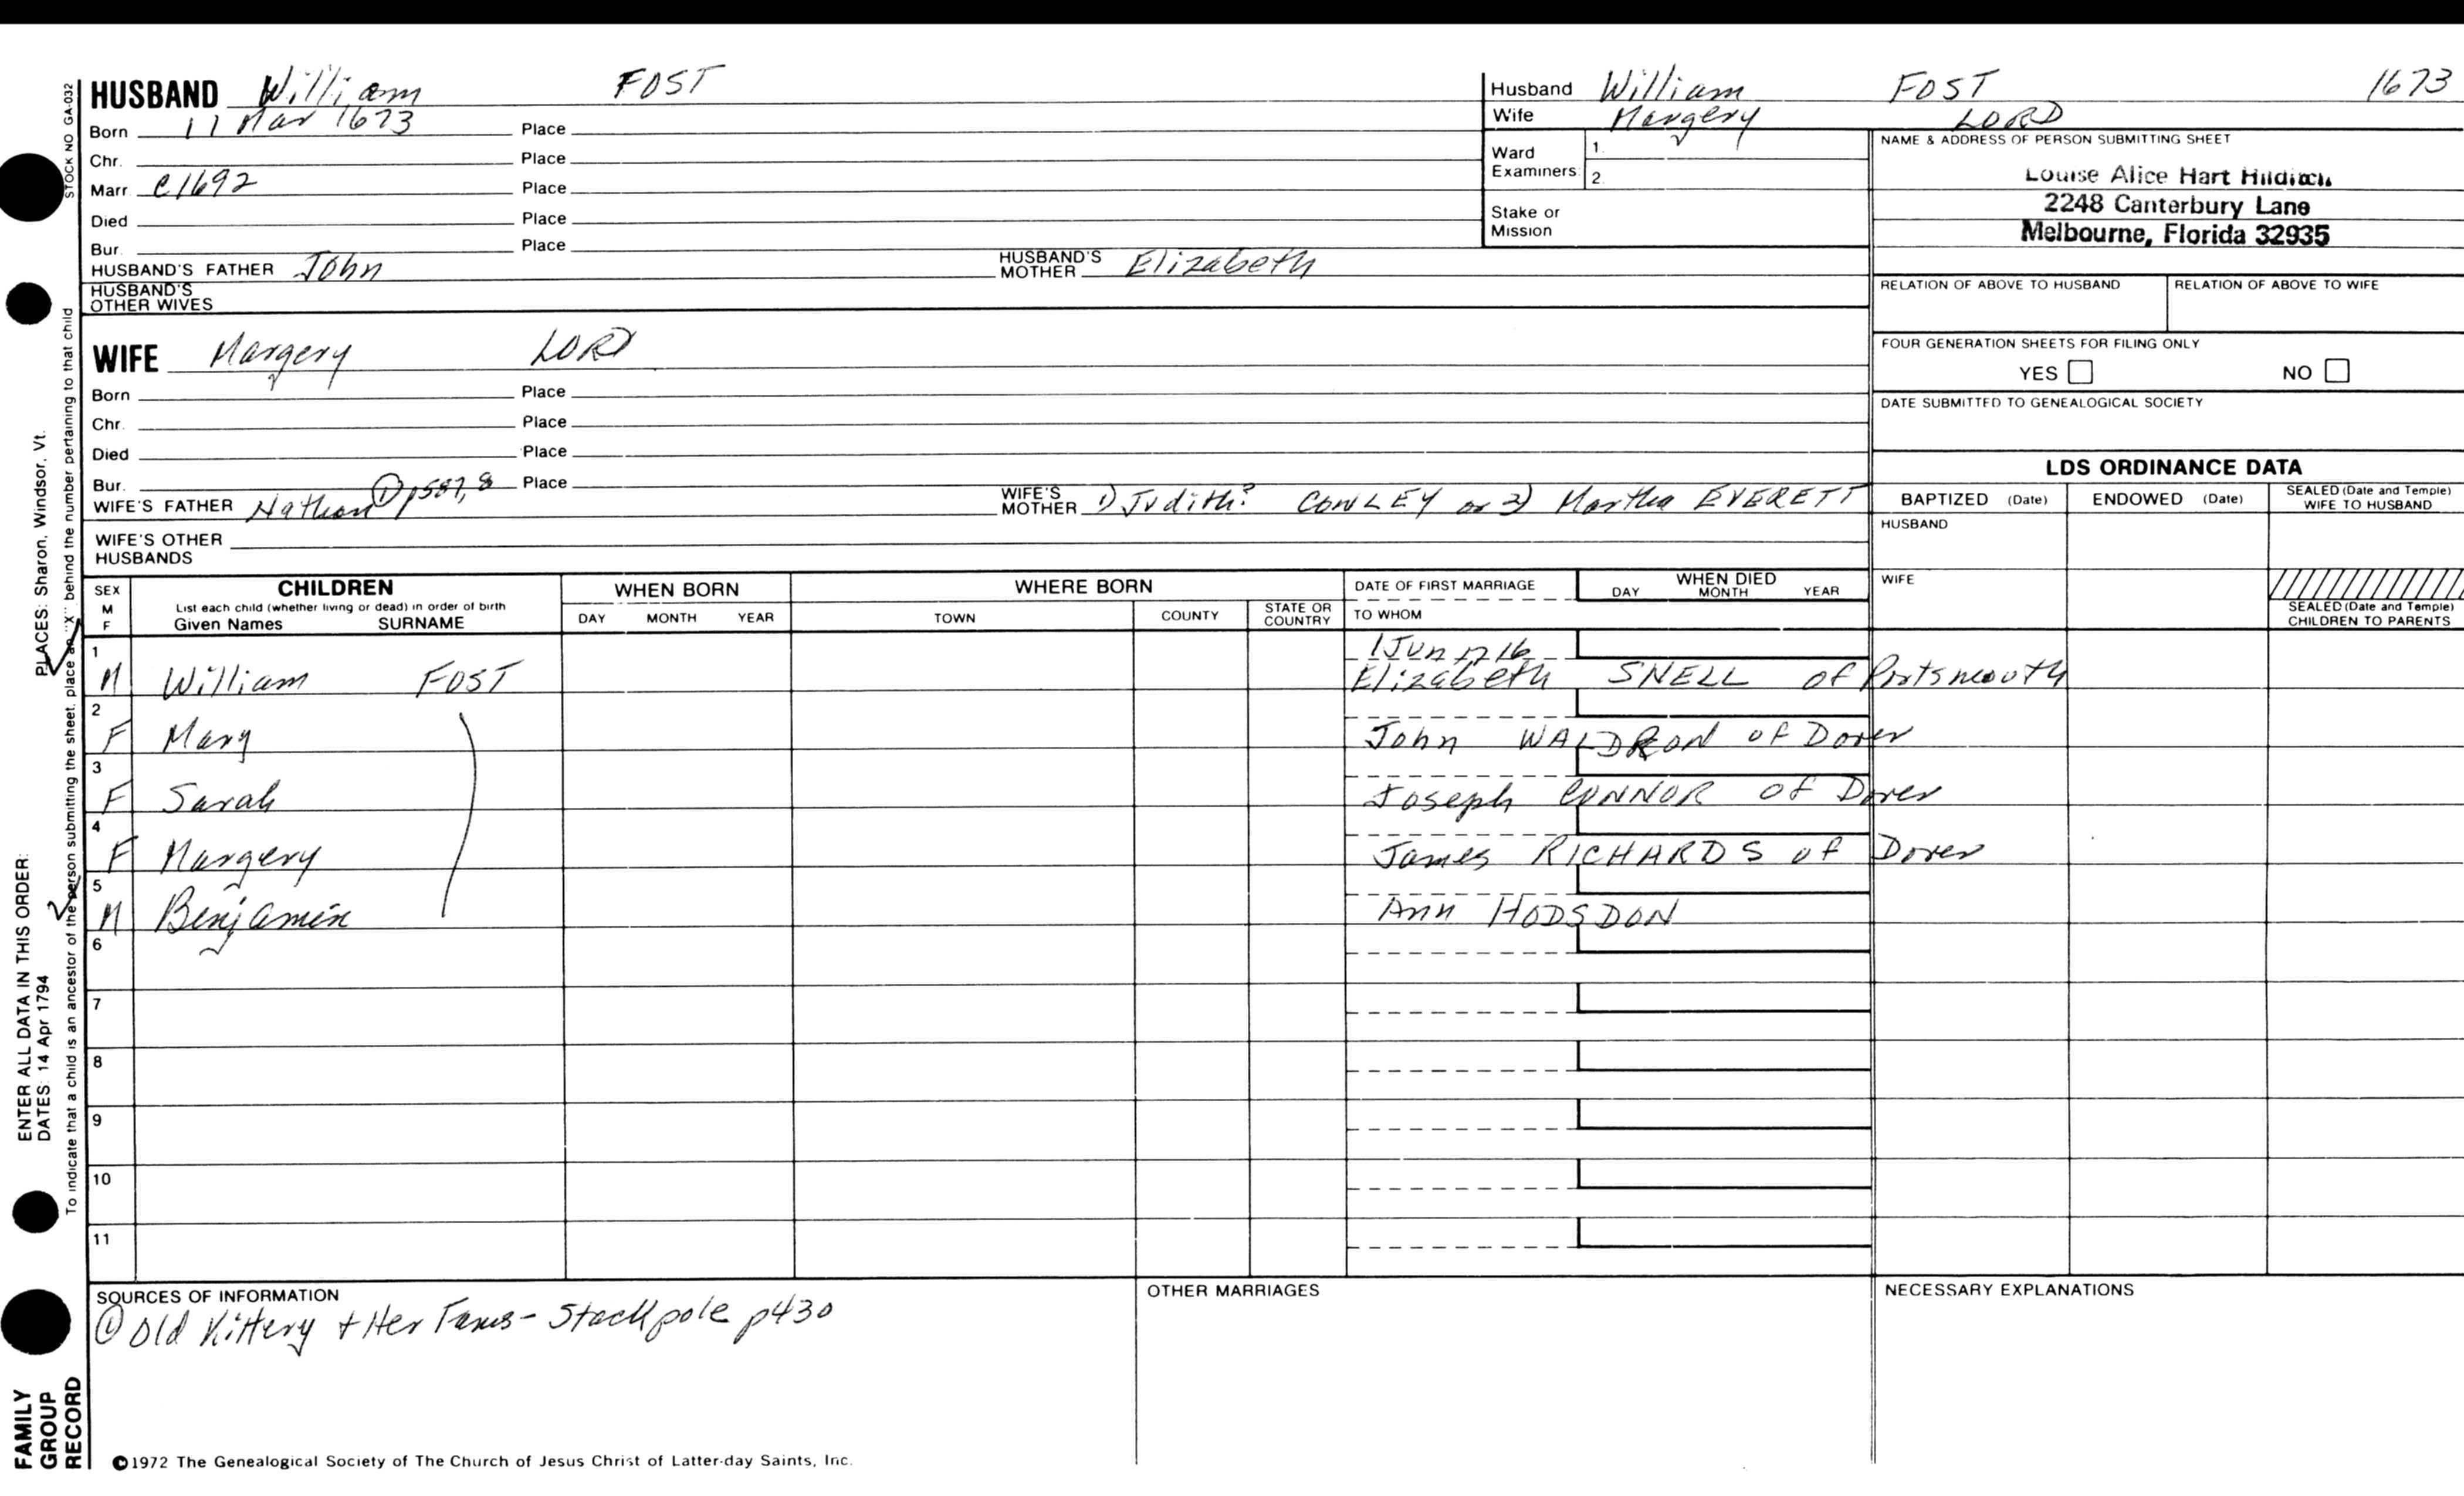 HUSBAND William FOST
Born 11 Mar 1673 Place
Chr. Place
Marr c1692 Place
Died Place
Bur. Place
HUSBAND'S FATHER John HUSBAND'S MOTHER Elizabeth
HUSBAND'S OTHER WIVES
WIFE Margery LORD
Born Place
Chr. Place
Died Place
Bur. Place
WIFE'S FATHER Nathan ① p587,8 WIFE'S MOTHER 1) Judith? CONLEY or 2) Martha EVERETT
WIFE'S OTHER HUSBANDS
Husband William FOST 1673
Wife Margery LORD
Ward Examiners: 1.
2.
Stake or Mission
NAME & ADDRESS OF PERSON SUBMITTING SHEET
Louise Alice Hart
2248 Canterbury Lane
Melbourne, Florida 32935
RELATION OF ABOVE TO HUSBAND RELATION OF ABOVE TO WIFE
FOUR GENERATION SHEETS FOR FILING ONLY
YES NO
DATE SUBMITTED TO GENEALOGICAL SOCIETY
LDS ORDINANCE DATA
BAPTIZED (Date) ENDOWED (Date) SEALED (Date and Temple) WIFE TO HUSBAND
HUSBAND
WIFE
SEALED (Date and Temple) CHILDREN TO PARENTS
SEX M F CHILDREN WHEN BORN WHERE BORN DATE OF FIRST MARRIAGE WHEN DIED
List each child (whether living or dead) in order of birth
Given Names SURNAME DAY MONTH YEAR TOWN COUNTY STATE OR COUNTRY TO WHOM DAY MONTH YEAR
1 1 Jun 1716
M William FOST Elizabeth SNELL of Portsmouth
2
F Mary John WALDRON of Dover
3
F Sarah Joseph CONNOR of Dover
4
F Margery James RICHARDS of Dover
5
M Benjamin Ann HODSDON
6
7
8
9
10
11
SOURCES OF INFORMATION
① Old Kittery + Her Fams - Stackpole p430
OTHER MARRIAGES
NECESSARY EXPLANATIONS
©1972 The Genealogical Society of The Church of Jesus Christ of Latter-day Saints, Inc.
STOCK NO GA-032
To indicate that a child is an ancestor of the person submitting the sheet, place an "X" behind the number pertaining to that child
ENTER ALL DATA IN THIS ORDER:
DATES: 14 Apr 1794 PLACES: Sharon, Windsor, Vt.
FAMILY GROUP RECORD